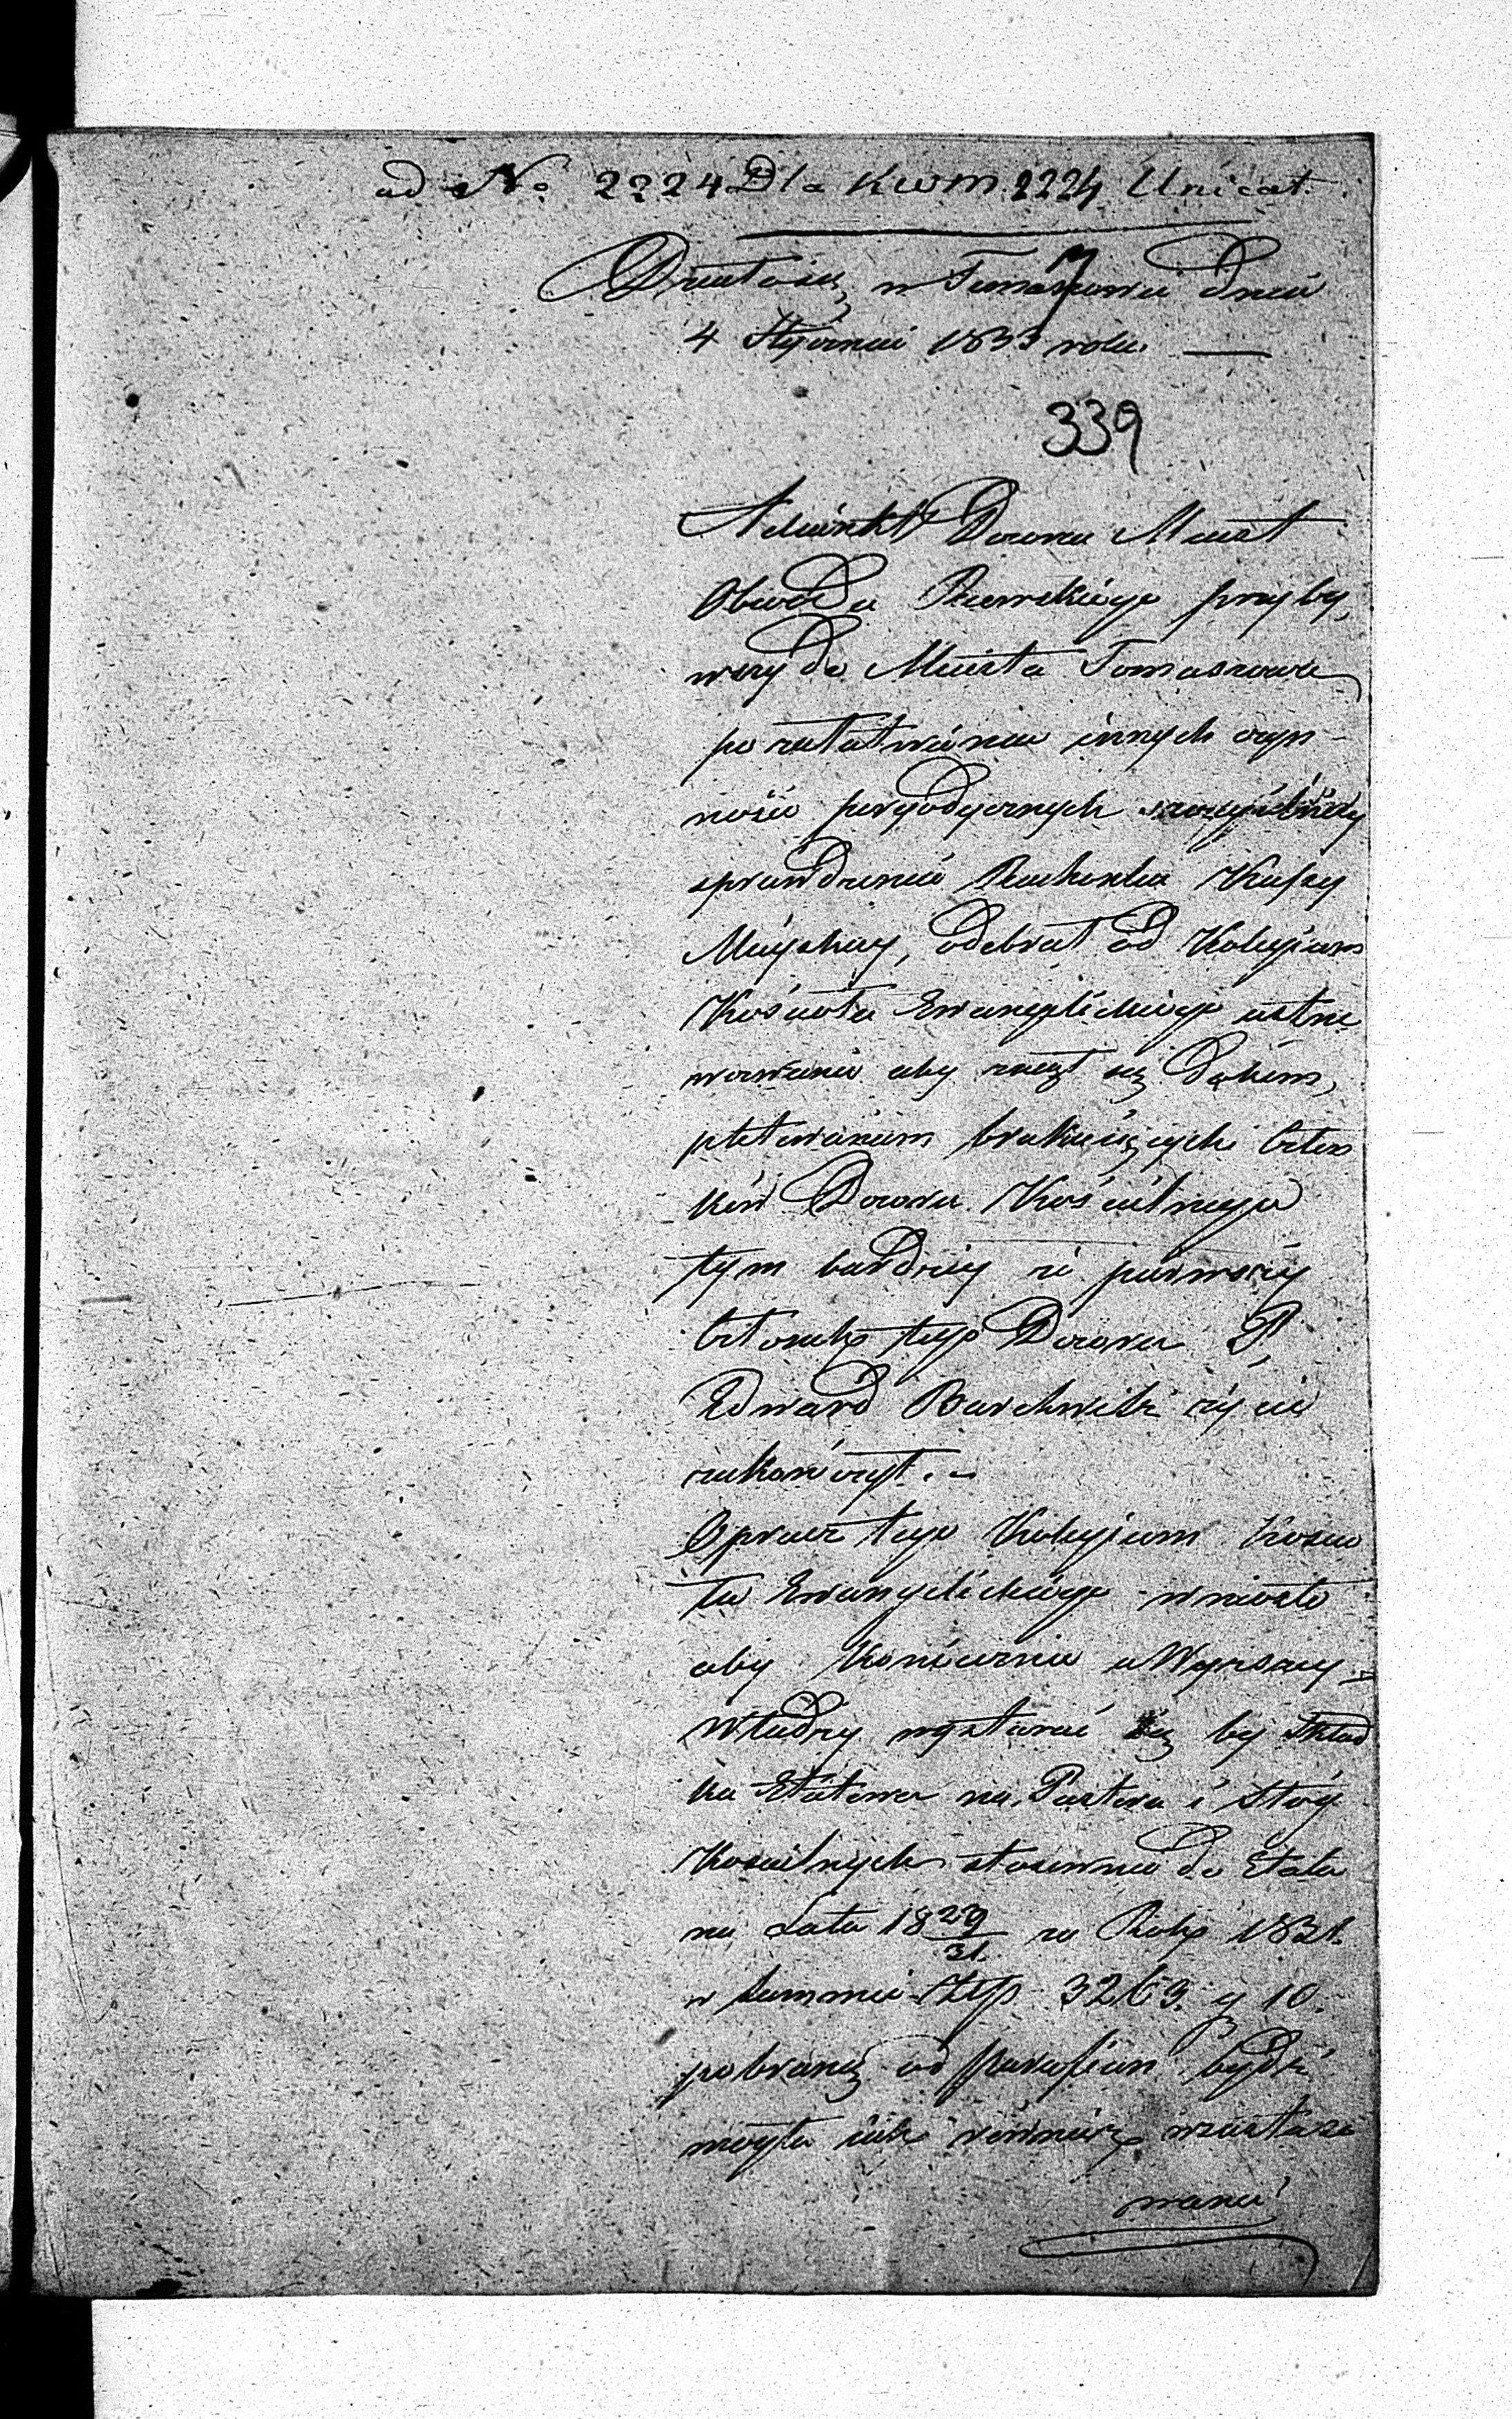 ad No 2224 Dla Kwm. 2224 Unicat.
Działo się w Tomaszowie dnia
7
4 Stycznia 1833 roku. —
339
Adiunkt Dozoru Miast
Obwodu Rawskiego przyby,
wszy do Miasta Tomaszowa
po załatwieniu innych czyn-
ności peryodycznych szczególniey
sprawdzeniu Rachonku Kassy
Mieyskiey, odebrał od Kolegium
Kościoła Ewangelickiego ustne
wezwanie aby zaiął się dokom,
pletowaniem brakuiących Człon
ków Dozoru Kościelnego
tym bardziey że pierwszy
Członek tego Dozoru P.
Edward Barchwitz życie
zakończył. —
Oprócz tego Kolegium Koscio
ła Ewangelickiego wniosło
aby koniecznie u Wyższey
Władzy wystarać się by Skład
ka Etatowa na Pastora i Sług
Koscielnych stosownie do Etatu
na Lata 18 29/31. za Rok 1831.
w Summie Złp 3263. g 10.
pobraną od Parafian bydź
mogła iak również wzastoso
waniu